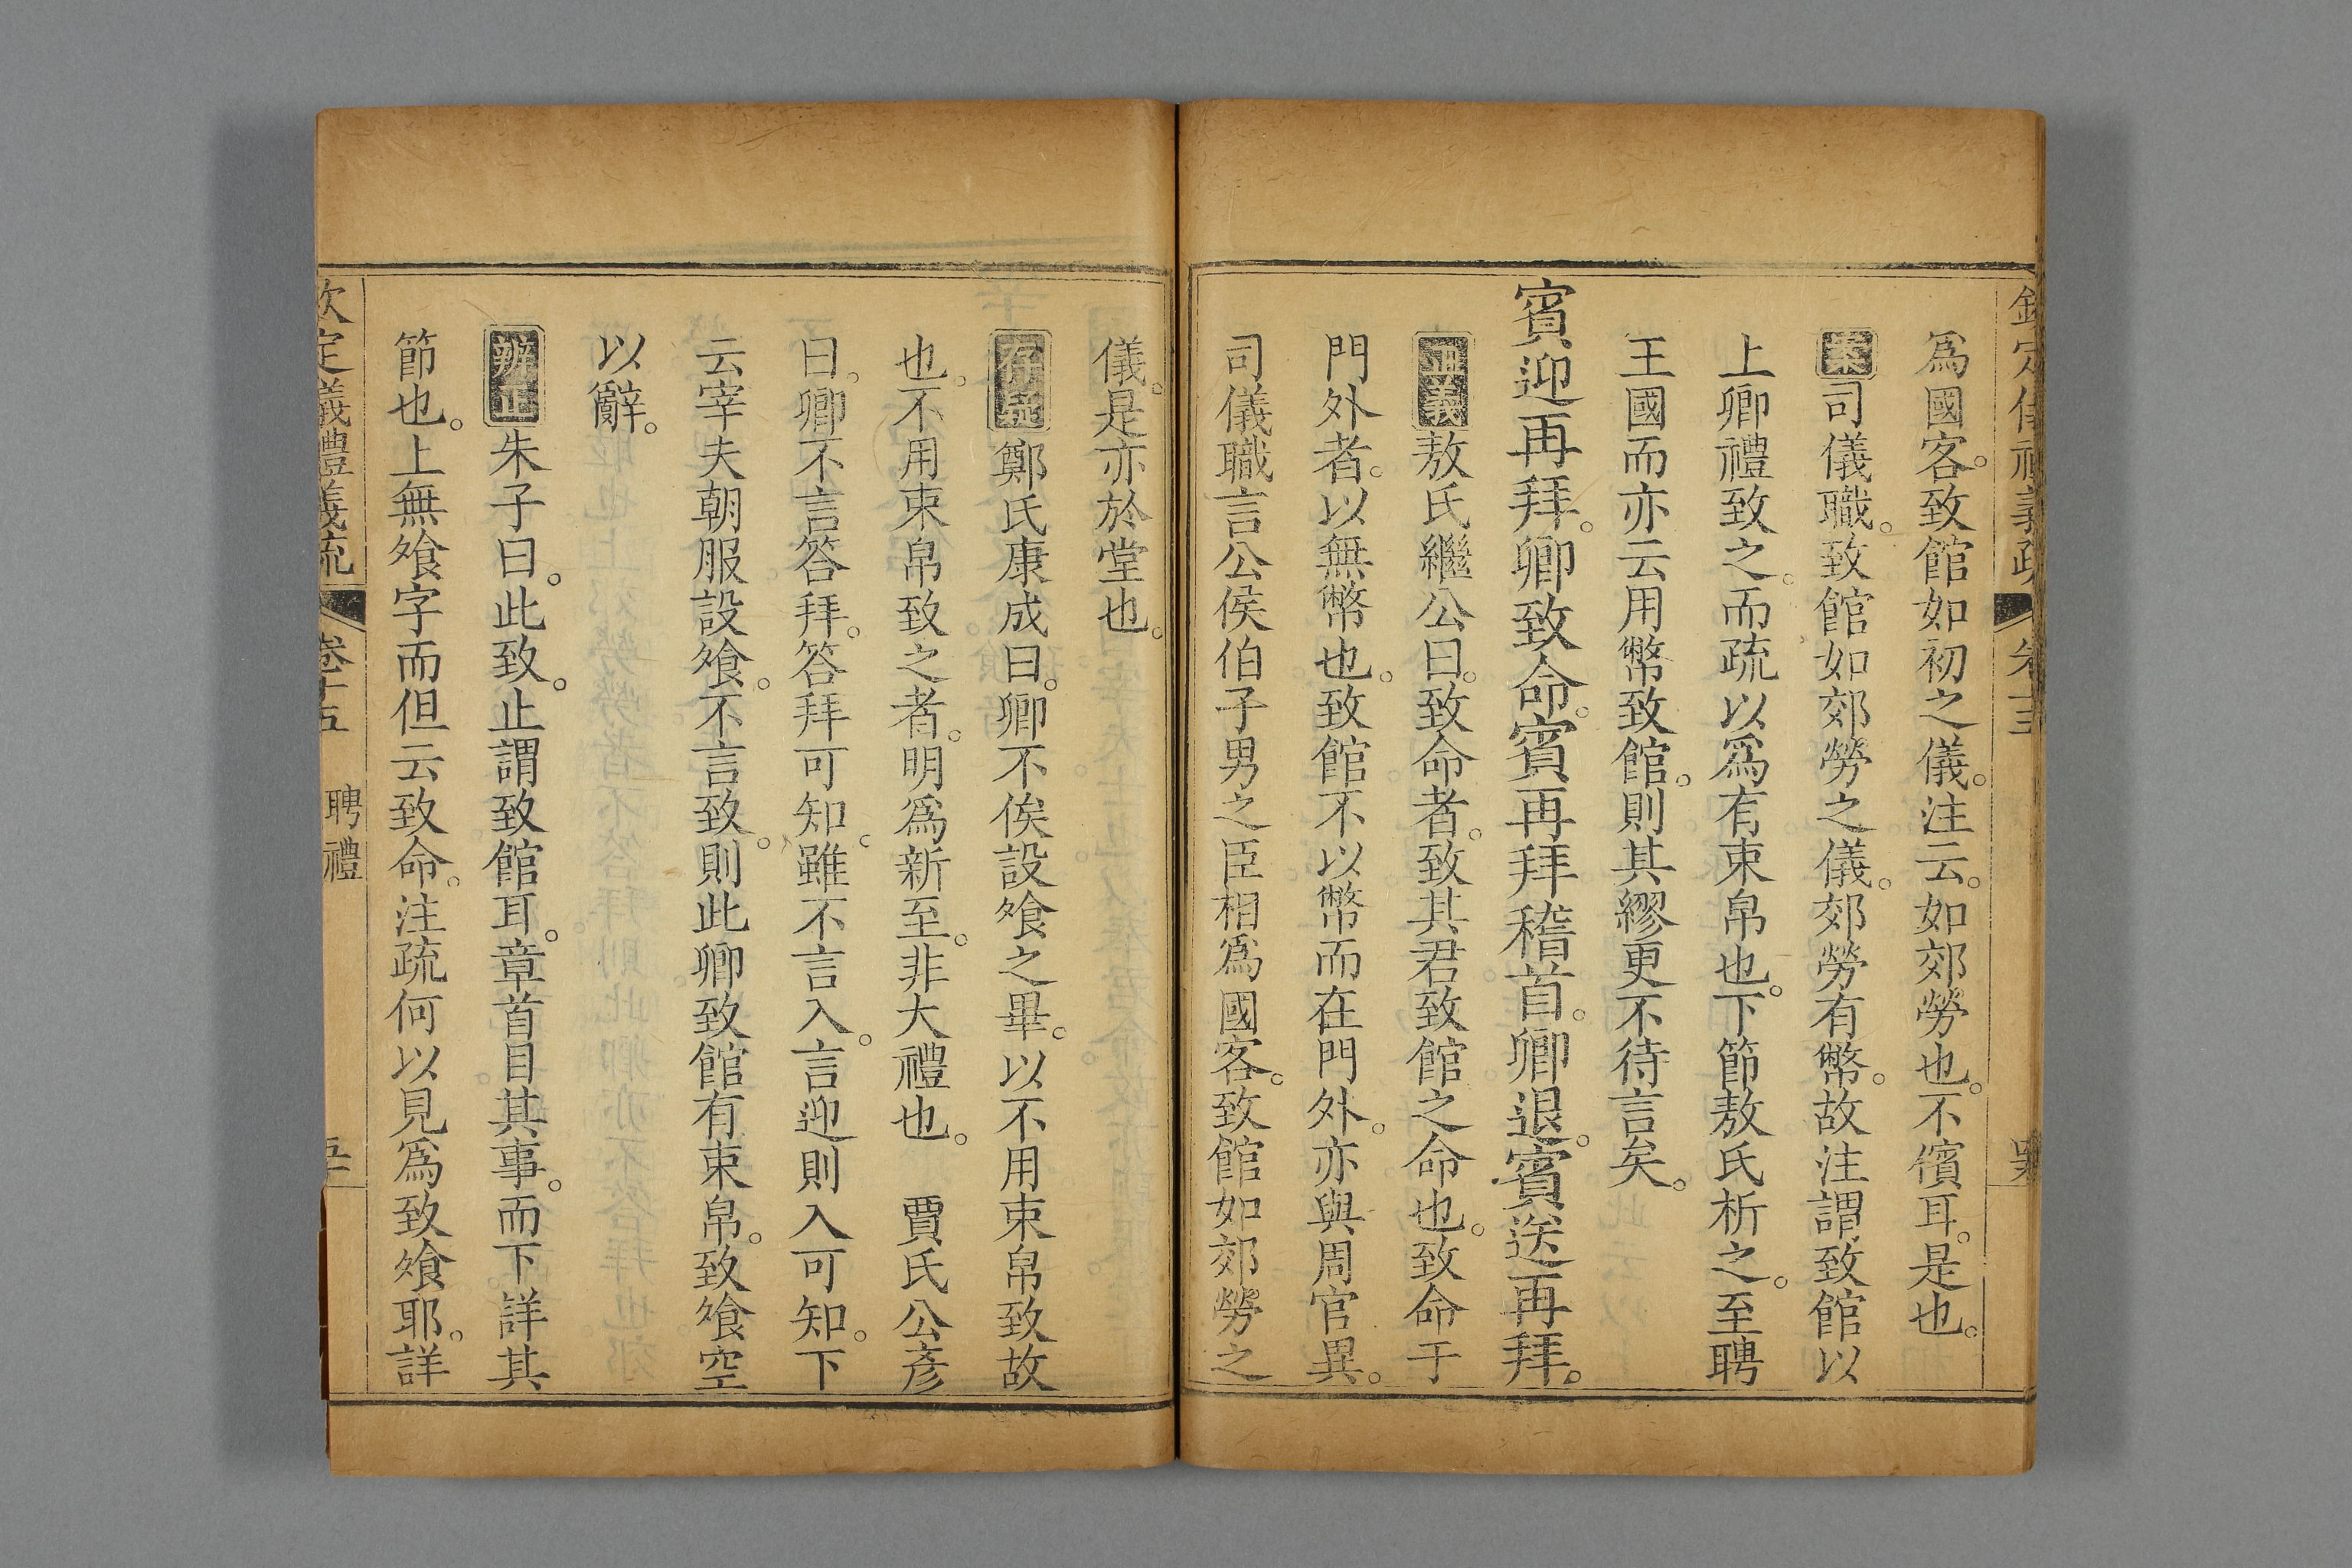 爲國客。致館如初之儀。注云。如郊勞也。不儐耳。是也。
案司儀職。致館如郊勞之儀。郊勞有幣。故注謂致館以
上卿禮致之。而疏以爲有束帛也。下節敖氏析之。至聘
王國而亦云用幣致館。則其繆更不待言矣。
賓迎再拜。卿致命。賓再拜稽首。卿退。賓送再拜。
正義敖氏繼公曰。致命者。致其君致館之命也。致命于
門外者。以無幣也。致館不以幣而在門外。亦與周官異。
司儀職言公侯伯子男之臣相爲國客。致館如郊勞之
儀。是亦於堂也。
存疑鄭氏康成曰。卿不俟設飧之畢。以不用束帛致故
也。不用束帛致之者。明爲新至。非大禮也。 賈氏公彥
曰。卿不言答拜。答拜可知。雖不言入。言迎則入可知。下
云宰夫朝服設飧。不言致。則此卿致館有束帛。致飧空
以辭。
辨正朱子曰。此致。止謂致館耳。章首目其事。而下詳其
節也。上無飧字而但云致命。注疏何以見爲致飧耶。詳
欽定儀禮義疏 卷十五 聘禮